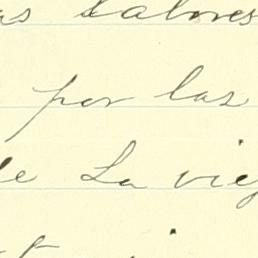 as Labores
por las
de La viej